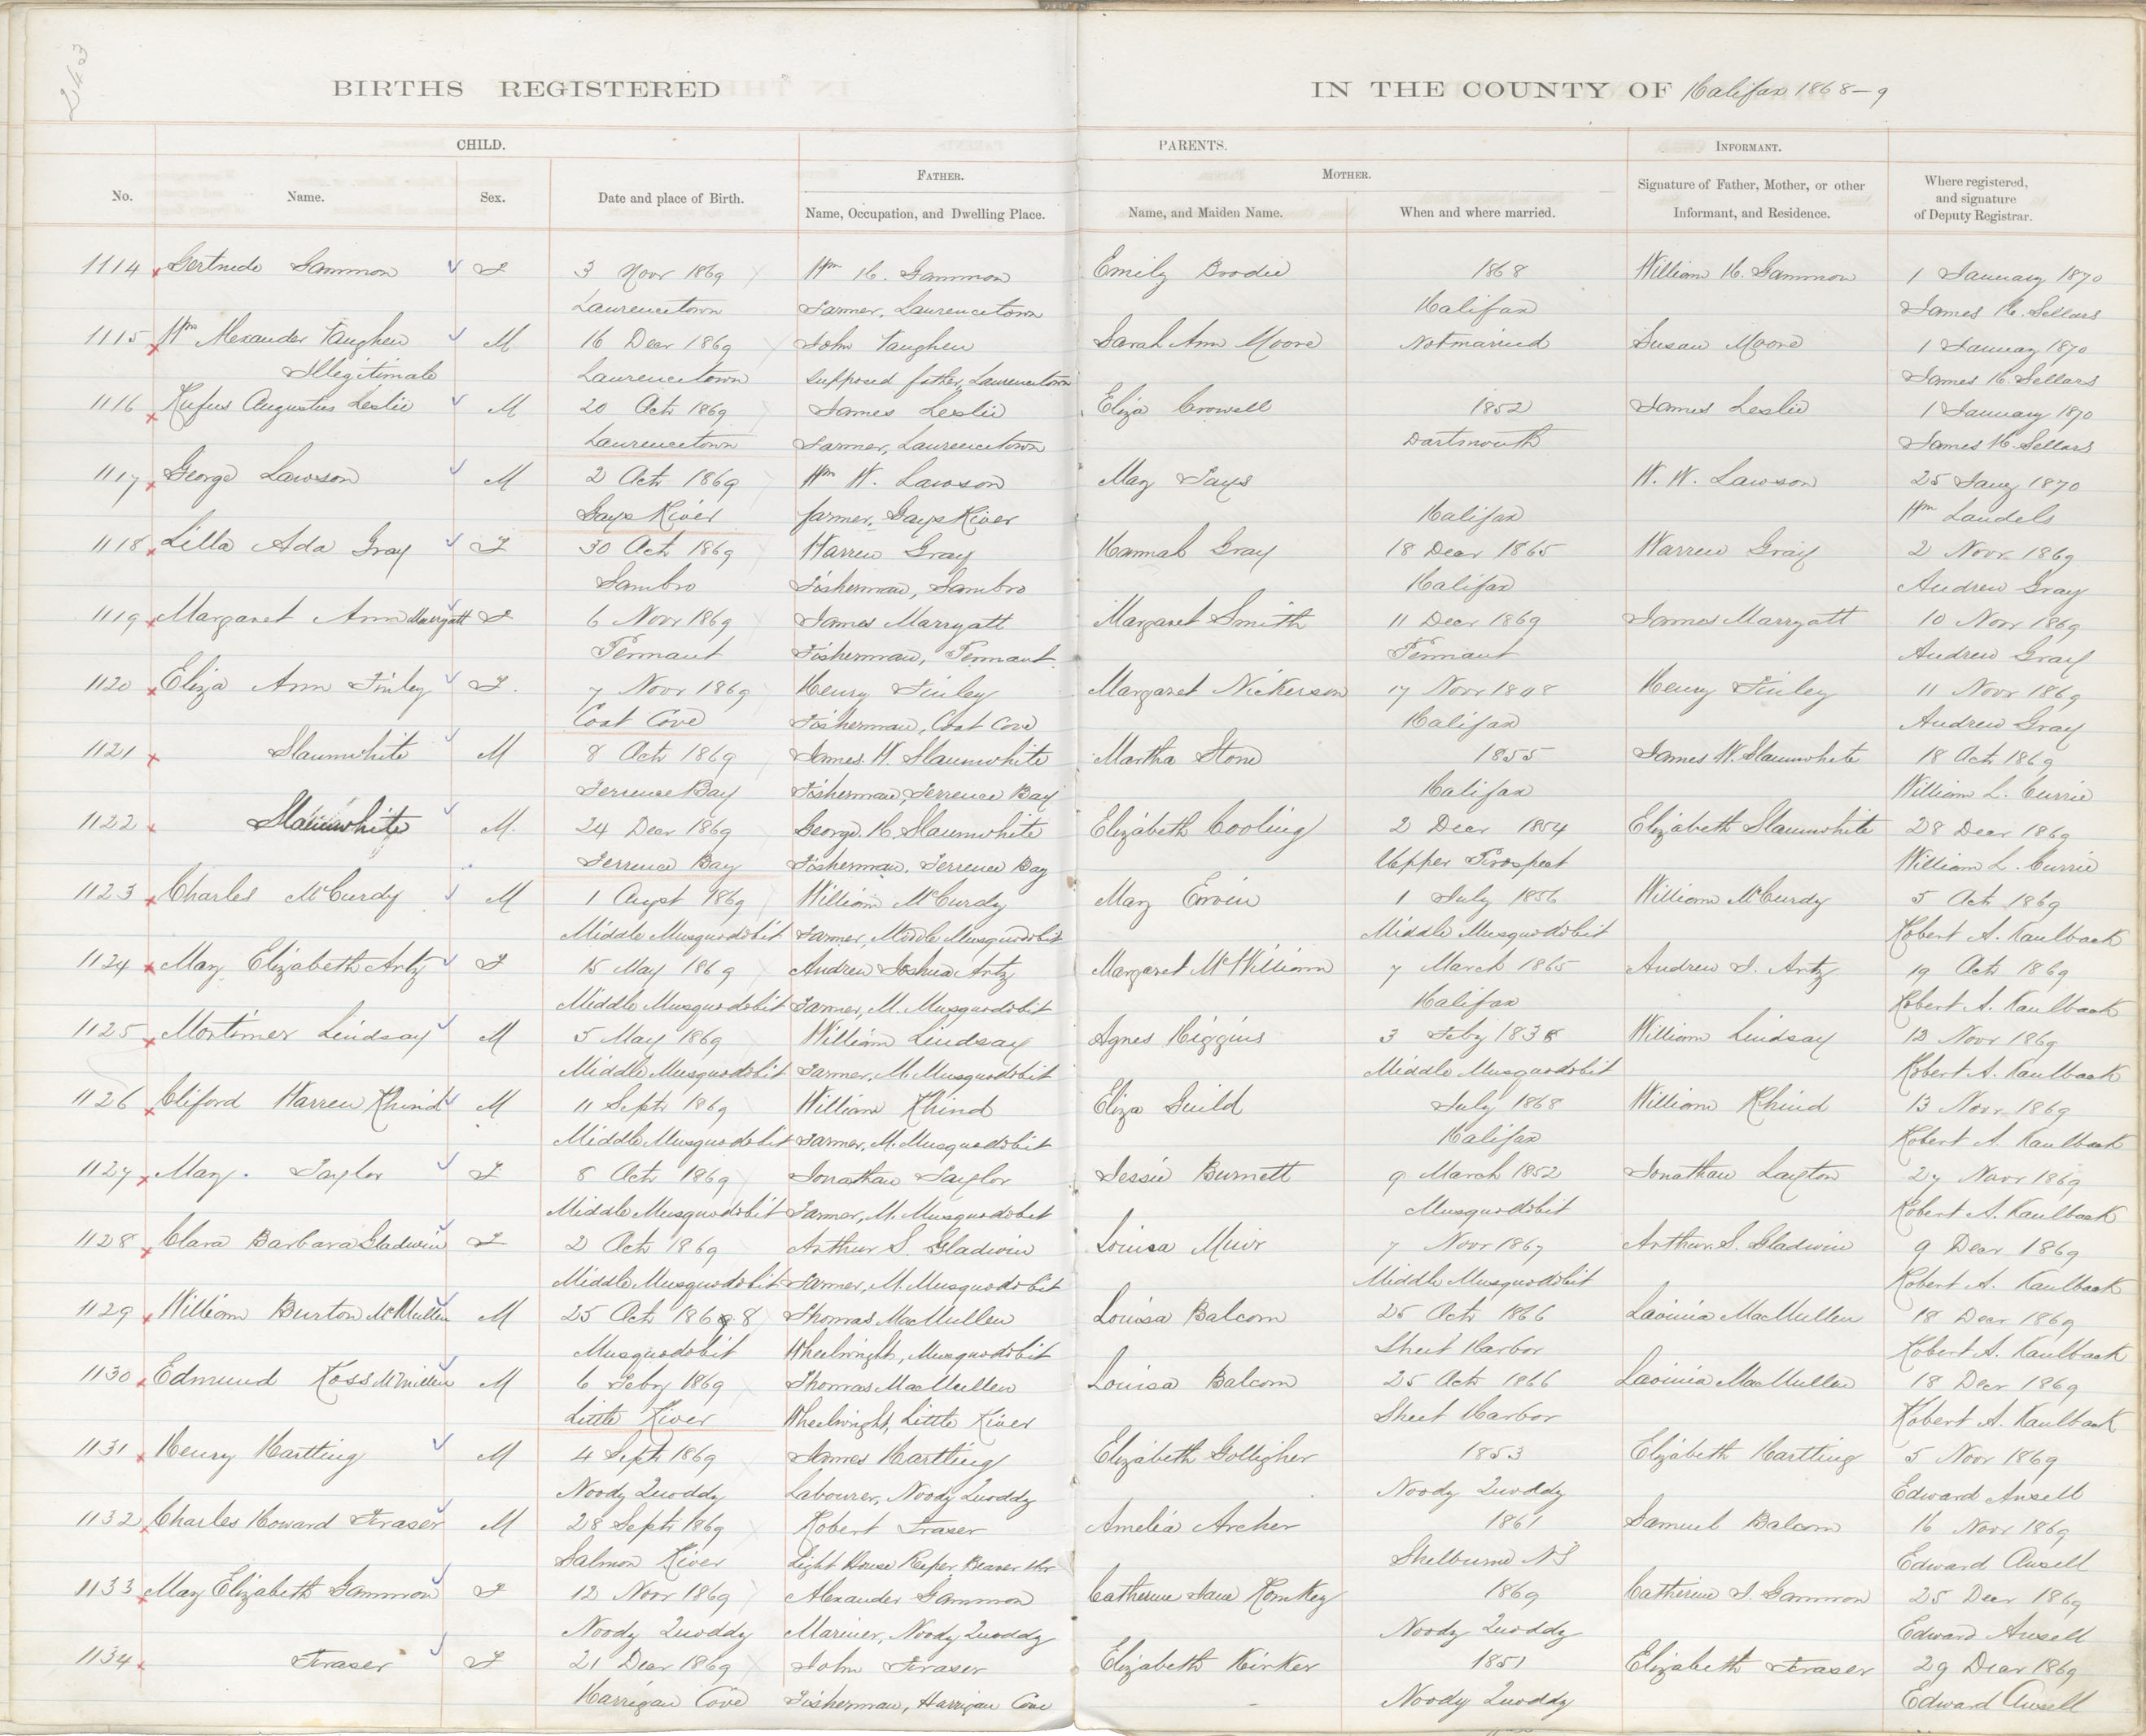 243
BIRTHS REGISTERED IN THE COUNTY OF Halifax 1868-9
CHILD. PARENTS. INFORMANT.
FATHER. MOTHER.
No. Name. Sex. Date and place of Birth. Name, Occupation, and Dwelling Place. Name, and Maiden Name. When and where married. Signature of Father, Mother, or other Informant, and Residence. Where registered, and signature of Deputy Registrar.
1114 Gertrude Gammon F 3 Novr 1869 Wm H. Gammon Emily Brodie 1868 William H. Gammon 1 January 1870
Laurencetown Farmer, Laurencetown Halifax James H. Sellars
1115 Wm Alexander Vaughen M 16 Decr 1869 John Vaughen Sarah Ann Moore Not married Susan Moore 1 January 1870
Illegitimate Laurencetown supposed father, Laurencetown James H. Sellars
1116 Rufus Augustus Leslie M 20 Octr 1869 James Leslie Eliza Crowell 1852 James Leslie 1 January 1870
Laurencetown Farmer, Laurencetown Dartmouth James H. Sellars
1117 George Lawson M 2 Octr 1869 Wm W. Lawson Mary Fays W. W. Lawson 25 Jany 1870
Gays River farmer, Gays River Halifax Wm Landels
1118 Lilla Ada Gray F 30 Octr 1869 Warren Gray Hannah Gray 18 Decr 1865 Warren Gray 2 Novr 1869
Sambro Fisherman, Sambro Halifax Andrew Gray
1119 Margaret Ann Marryatt F 6 Novr 1869 James Marryatt Margaret Smith 11 Decr 1869 James Marryatt 10 Novr 1869
Pennant Fisherman, Pennant Pennant Andrew Gray
1120 Eliza Ann Finley F. 7 Novr 1869 Henry Finley Margaret Nickerson 17 Novr 1848 Henry Finley 11 Novr 1869
Coat Cove Fisherman, Coat Cove Halifax Andrew Gray
1121 Slaunwhite M 8 Octr 1869 James. W. Slaunwhite Martha Stone 1855 James W. Slaunwhite 18 Octr 1869
Terrence Bay Fisherman, Terrence Bay Halifax William L. Currie
1122 Slaunwhite M. 24 Decr 1869 George. H. Slaunwhite Elizabeth Cooling 2 Decr 1854 Elizabeth Slaunwhite 28 Decr 1869
Terrence Bay Fisherman, Terrence Bay Upper Prospect William L. Currie
1123 Charles McCurdy M 1 Augst 1869 William McCurdy Mary Ervin 1 July 1856 William McCurdy 5 Octr 1869
Middle Musquodobit Farmer, Middle Musquodobit Middle Musquodobit Robert A. Kaulback
1124 Mary Elizabeth Artz F 15 May 1869 Andrew Joshua Artz Margaret McWilliam 7 March 1865 Andrew J. Artz 19 Octr 1869
Middle Musquodobit Farmer, M. Musquodobit Halifax Robert A. Kaulback
1125 Mortimer Lindsay M 5 May 1869 William Lindsay Agnes Higgins 3 Feby William Lindsay 12 Novr 1869
Middle Musquodobit Farmer, M. Musquodobit Middle Musquodobit Robert A. Kaulback
1126 Cliford Warren Rhind M 11 Septr 1869 William Rhind Eliza Guild July 1868 William Rhind 13 Novr 1869
Middle Musquodobit Farmer, M. Musquodobit Halifax Robert A. Kaulback
1127 Mary. Taylor F 8 Octr 1869 Jonathan Taylor Jessie Burnett 9 March 1852 Jonathan Layton 27 Novr 1869
Middle Musquodobit Farmer, M. Musquodobit Musquodobit Robert A. Kaulback
1128 Clara Barbara Gladwin F 2 Octr 1869 Arthur S. Gladwin Louisa Muir 7 Novr 1867 Arthur. S. Gladwin 9 Decr 1869
Middle Musquodobit Farmer, M. Musquodobit Middle Musquodobit Robert A. Kaulback
1129 William Burton McMullen M 25 Octr 1868 Thomas MacMullen Louisa Balcom 25 Octr 1866 Lavinia MacMullen 18 Decr 1869
Musquodobit Wheelwright, Musquodobit Sheet Harbor Robert A. Kaulback
1130 Edmund Ross McMillen M 6 Feby 1869 Thomas MacMullen Louisa Balcom 25 Octr 1866 Lavinia MacMullen 18 Decr 1869
Little River Wheelwright, Little River Sheet Harbor Robert A. Kaulback
1131 Henry Hartling M 4 Septr 1869 James Hartling Elizabeth Golligher 1853 Elizabeth Hartling 5 Novr 1869
Noody Quoddy Labourer, Noody Quoddy Noody Quoddy Edward Ansell
1132 Charles Howard Fraser M 28 Septr 1869 Robert Fraser Amelia Archer 1861 Samuel Balcom 16 Novr 1869
Salmon River Light House Keeper, Beaver Hr Shelburne NS Edward Ansell
1133 Mary Elizabeth Gammon F 12 Novr 1869 Alexander Gammon Catherine Jane 1869 Catherine J. Gammon 25 Decr 1869
Noody Quoddy Mariner, Noody Quoddy Noody Quoddy Edward Ansell
1134 Fraser F 21 Decr 1869 John Fraser Elizabeth Kirker 1851 Elizabeth Fraser 29 Decr 1869
Harrigan Cove Fisherman, Harrigan Cove Noody Quoddy Edward Ansell